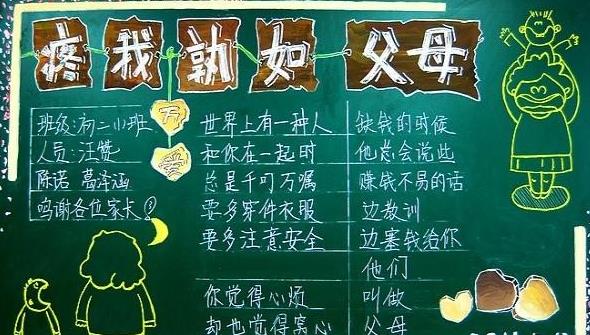 疼我孰如父母
万
爱
班级:初二小班
人员:汪赞
陈诺 葛泽涵
鸣谢各位家长!
世界上有一种人
和你在一起时
总是千叮万嘱
要多穿件衣服
要多注意安全
你觉得心烦
却也觉得窝心
缺钱的时候
他总会说些
赚钱不易的话
边教训
边塞钱给你
他们
叫做
父母